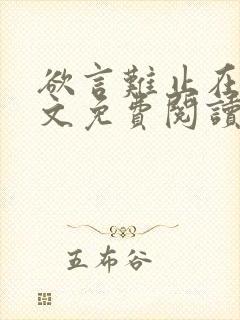 欲言難止在
文免費閱讀
五布谷